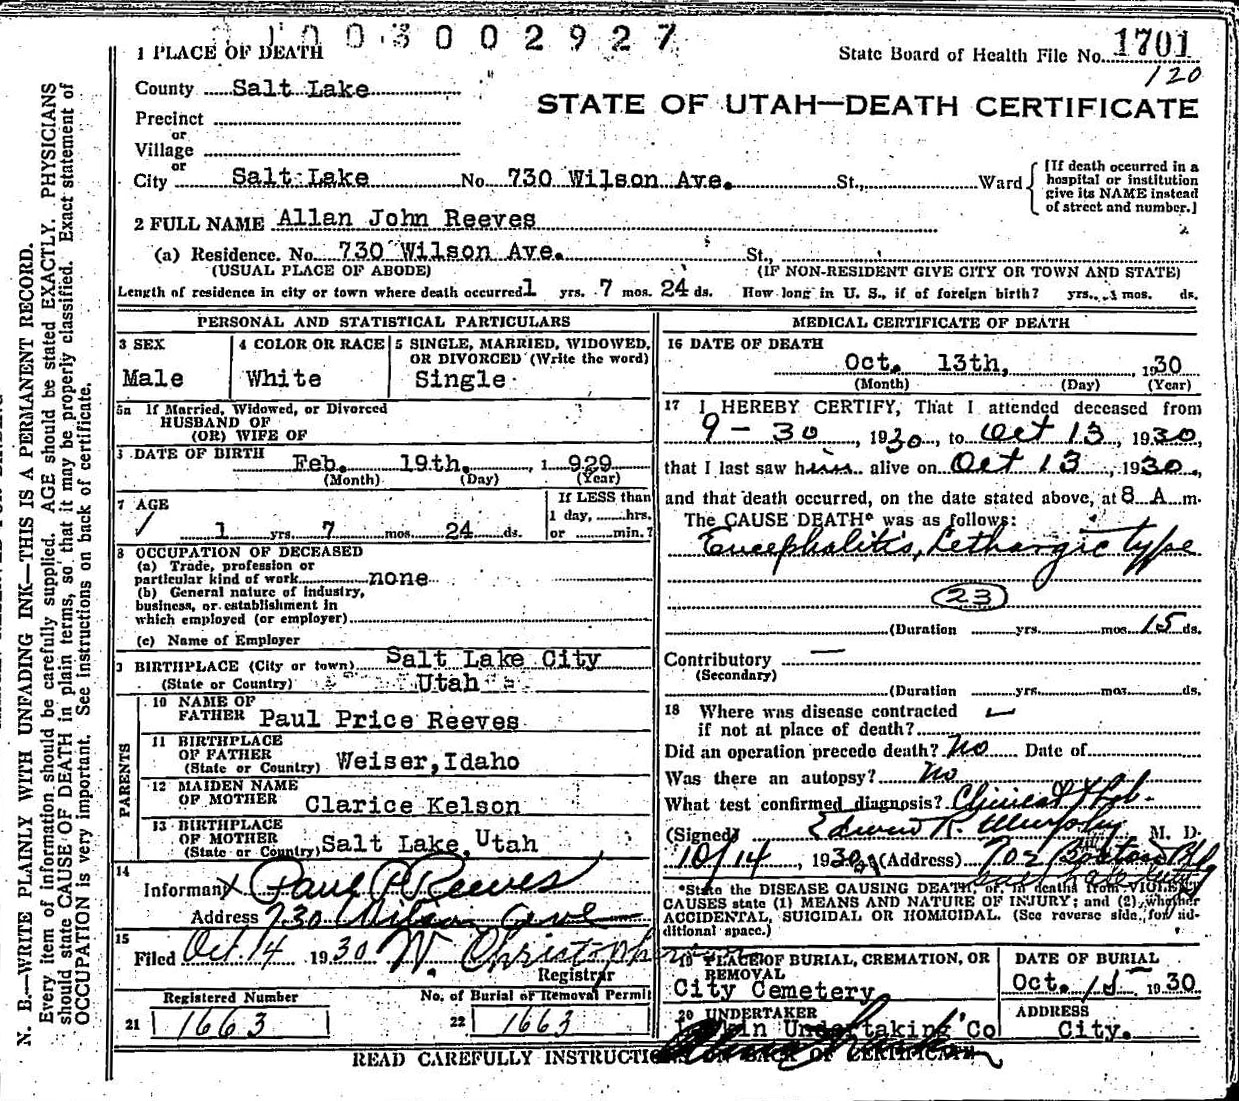 1003002927
1 PLACE OF DEATH
State Board of Health File No. 1701
120
County Salt Lake
STATE OF UTAH—DEATH CERTIFICATE
Precinct
or
Village
or
City Salt Lake No. 730 Wilson Ave. St., Ward
[If death occurred in a
hospital or institution
give its NAME instead
of street and number.]
2 FULL NAME Allan John Reeves
(a) Residence. No. 730 Wilson Ave. St.,
(USUAL PLACE OF ABODE) (IF NON-RESIDENT GIVE CITY OR TOWN AND STATE)
Length of residence in city or town where death occurred 1 yrs. 7 mos. 24 ds. How long in U. S., if of foreign birth? yrs. mos. ds.
PERSONAL AND STATISTICAL PARTICULARS
3 SEX
Male
4 COLOR OR RACE
White
5 SINGLE, MARRIED, WIDOWED,
OR DIVORCED (Write the word)
Single
5a If Married, Widowed, or Divorced
HUSBAND OF
(OR) WIFE OF
DATE OF BIRTH Feb. 19th. , 1 929
(Month) (Day) (Year)
7 AGE
1 yrs. 7 mos. 24 ds.
If LESS than
1 day, hrs.
or min.?
8 OCCUPATION OF DECEASED
(a) Trade, profession or
particular kind of work none
(b) General nature of industry,
business, or establishment in
which employed (or employer)
(c) Name of Employer
BIRTHPLACE (City or town) Salt Lake City
(State or Country) Utah
PARENTS
10 NAME OF
FATHER Paul Price Reeves
11 BIRTHPLACE
OF FATHER
(State or Country) Weiser, Idaho
12 MAIDEN NAME
OF MOTHER Clarice Kelson
13 BIRTHPLACE
OF MOTHER
(State or Country) Salt Lake, Utah
14
Informant X Paul P Reeves
Address 730 Wilson Ave
15
Filed Oct. 14 1930 W. Christoph
Registrar
Registered Number
21 1663
No. of Burial or Removal Permit
22 1663
MEDICAL CERTIFICATE OF DEATH
16 DATE OF DEATH
Oct. 13th, , 1930
(Month) (Day) (Year)
17 I HEREBY CERTIFY, That I attended deceased from
9 - 30 , 1930, to Oct 13, 1930,
that I last saw him alive on Oct 13, 1930,
and that death occurred, on the date stated above, at 8 A m.
The CAUSE DEATH* was as follows:
Encephalitis, Lethargic type
23
(Duration yrs. mos. 15 ds.
Contributory —
(Secondary)
(Duration yrs. mos. ds.
18 Where was disease contracted
if not at place of death?
Did an operation precede death? No Date of
Was there an autopsy? No
What test confirmed diagnosis? Clinical & Lab.
(Signed) Edwin R. Murphy M. D.
10/14, 1930 (Address) 702 Boston Bldg
Salt Lake City
*State the DISEASE CAUSING DEATH, or, in deaths from VIOLENT
CAUSES state (1) MEANS AND NATURE OF INJURY; and (2), whether
ACCIDENTAL, SUICIDAL OR HOMICIDAL. (See reverse side, for ad-
ditional space.)
19 PLACE OF BURIAL, CREMATION, OR
REMOVAL
City Cemetery
DATE OF BURIAL
Oct. 15 1930
20 UNDERTAKER
Undertaking Co
ADDRESS
City.
READ CAREFULLY INSTRUCTIONS ON BACK OF CERTIFICATE
N. B.—WRITE PLAINLY WITH UNFADING INK—THIS IS A PERMANENT RECORD.
Every item of information should be carefully supplied. AGE should be stated EXACTLY. PHYSICIANS
should state CAUSE OF DEATH in plain terms, so that it may be properly classified. Exact statement of
OCCUPATION is very important. See instructions on back of certificate.